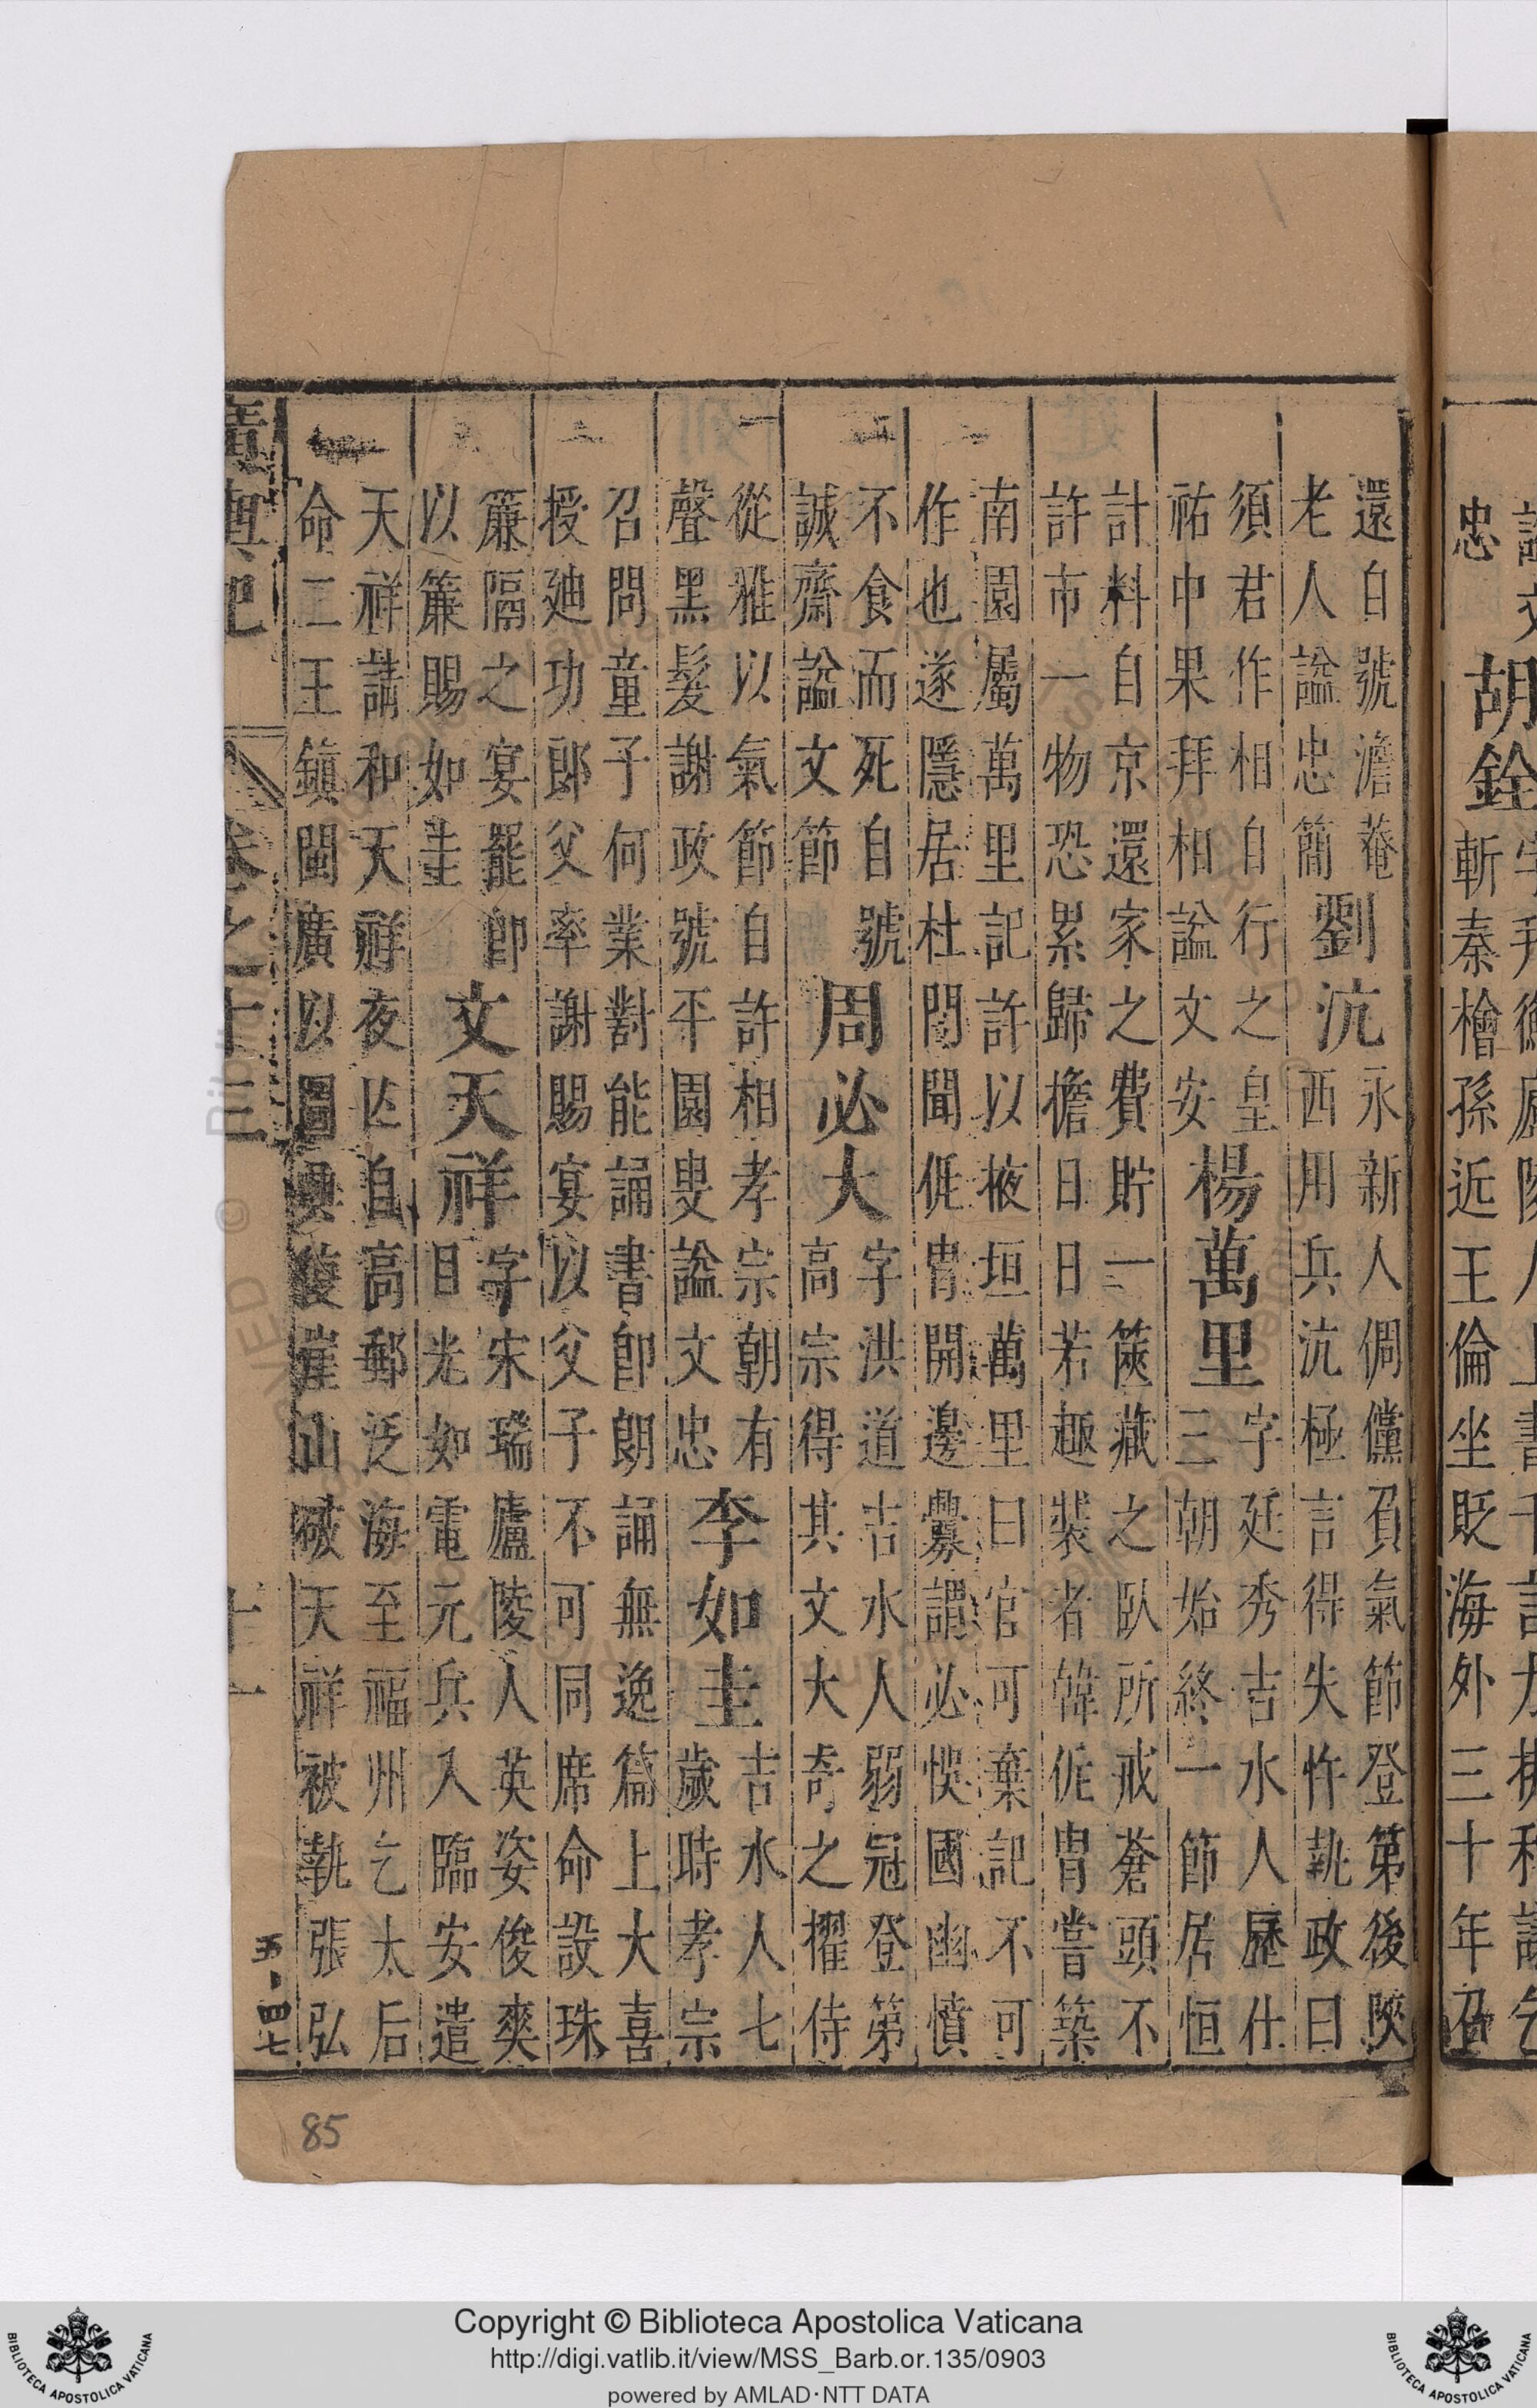 忠
胡銓
斬秦檜孫近王倫坐貶海外三十年召
還自號澹菴
老人謚忠簡
劉沆
永新人倜儻負氣節登第後陝
西用兵沆極言得失忤執政曰
須君作相自行之皇
祐中果拜相謚文安
楊萬里
字廷秀吉水人歷仕
三朝始終一節居恒
計料自京還家之費貯一篋藏之臥所戒蒼頭不
許市一物恐累歸擔日日若趣裝者韓侂冑嘗築
南園屬萬里記許以掖垣萬里曰官可棄記不可
作也遂隱居杜門聞侂冑開邊釁謂必悞國幽憤
不食而死自號
誠齋謚文節
周必大
字洪道吉水人弱冠登第
高宗得其文大奇之擢侍
從雅以氣節自許相孝宗朝有
聲黑髮謝政號平園叟謚文忠
李如圭
吉水人七
歲時孝宗
召問童子何業對能誦書即朗誦無逸篇上大喜
授廸功郎父率謝賜宴以父子不可同席命設珠
簾隔之宴罷即
以簾賜如圭
文天祥
字宋瑞廬陵人英姿俊爽
目光如電元兵入臨安遣
天祥請和天祥夜亾自高郵泛海至福州乞太后
命二王鎮閩廣以圖興復崖山破天祥被執張弘
廣輿記 卷之十三 十一
五、四七
85
Copyright © Biblioteca Apostolica Vaticana
http://digi.vatlib.it/view/MSS_Barb.or.135/0903
powered by AMLAD·NTT DATA
BIBLIOTECA APOSTOLICA VATICANA
BIBLIOTECA APOSTOLICA VATICANA